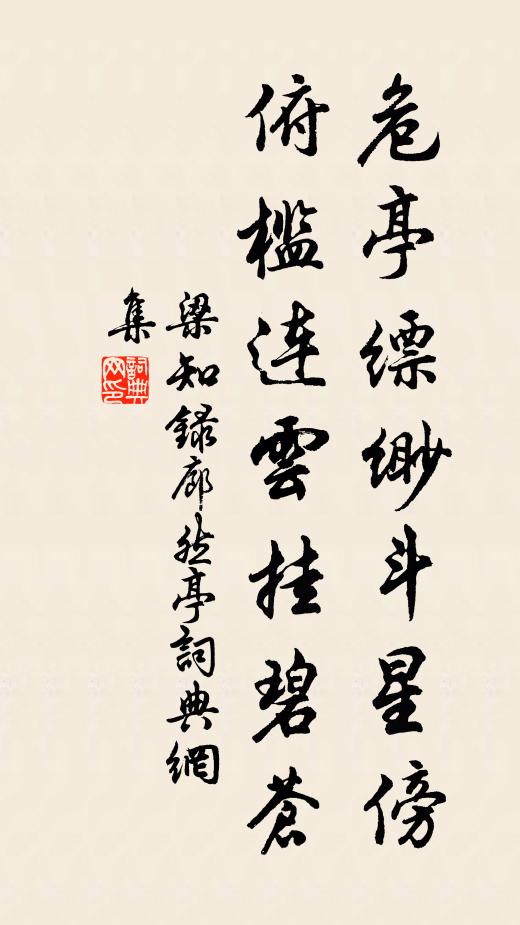 危亭缥緲斗星傍
俯檻連雲挂碧蒼
梁知録廓然亭詞典網
集
詞典网印